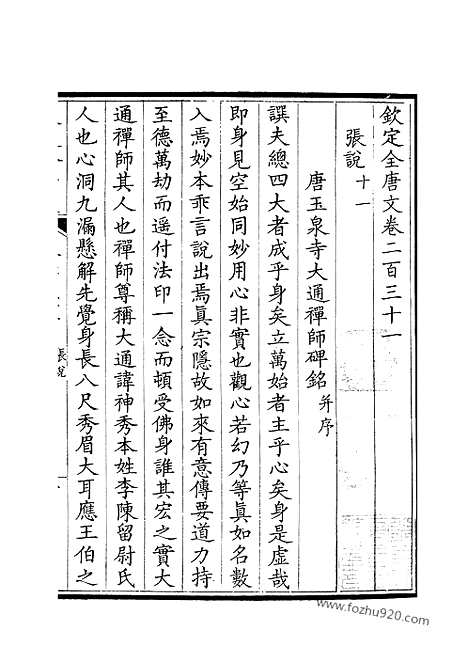 欽定全唐文卷二百三十一
張說十一
唐玉泉寺大通禪師碑銘并序
譔夫總四大者成乎身矣立萬始者主乎心矣身是虛哉
即身見空始同妙用心非實也觀心若幻乃等眞如名數
入焉妙本乖言說出焉眞宗隱故如來有意傳要道力持
至德萬劫而遥付法印一念而頓受佛身誰其宏之實大
通禪師其人也禪師尊稱大通諱神秀本姓李陳留尉氏
人也心洞九漏懸解先覺身長八尺秀眉大耳應王伯之
張說
www.fozhu920.com